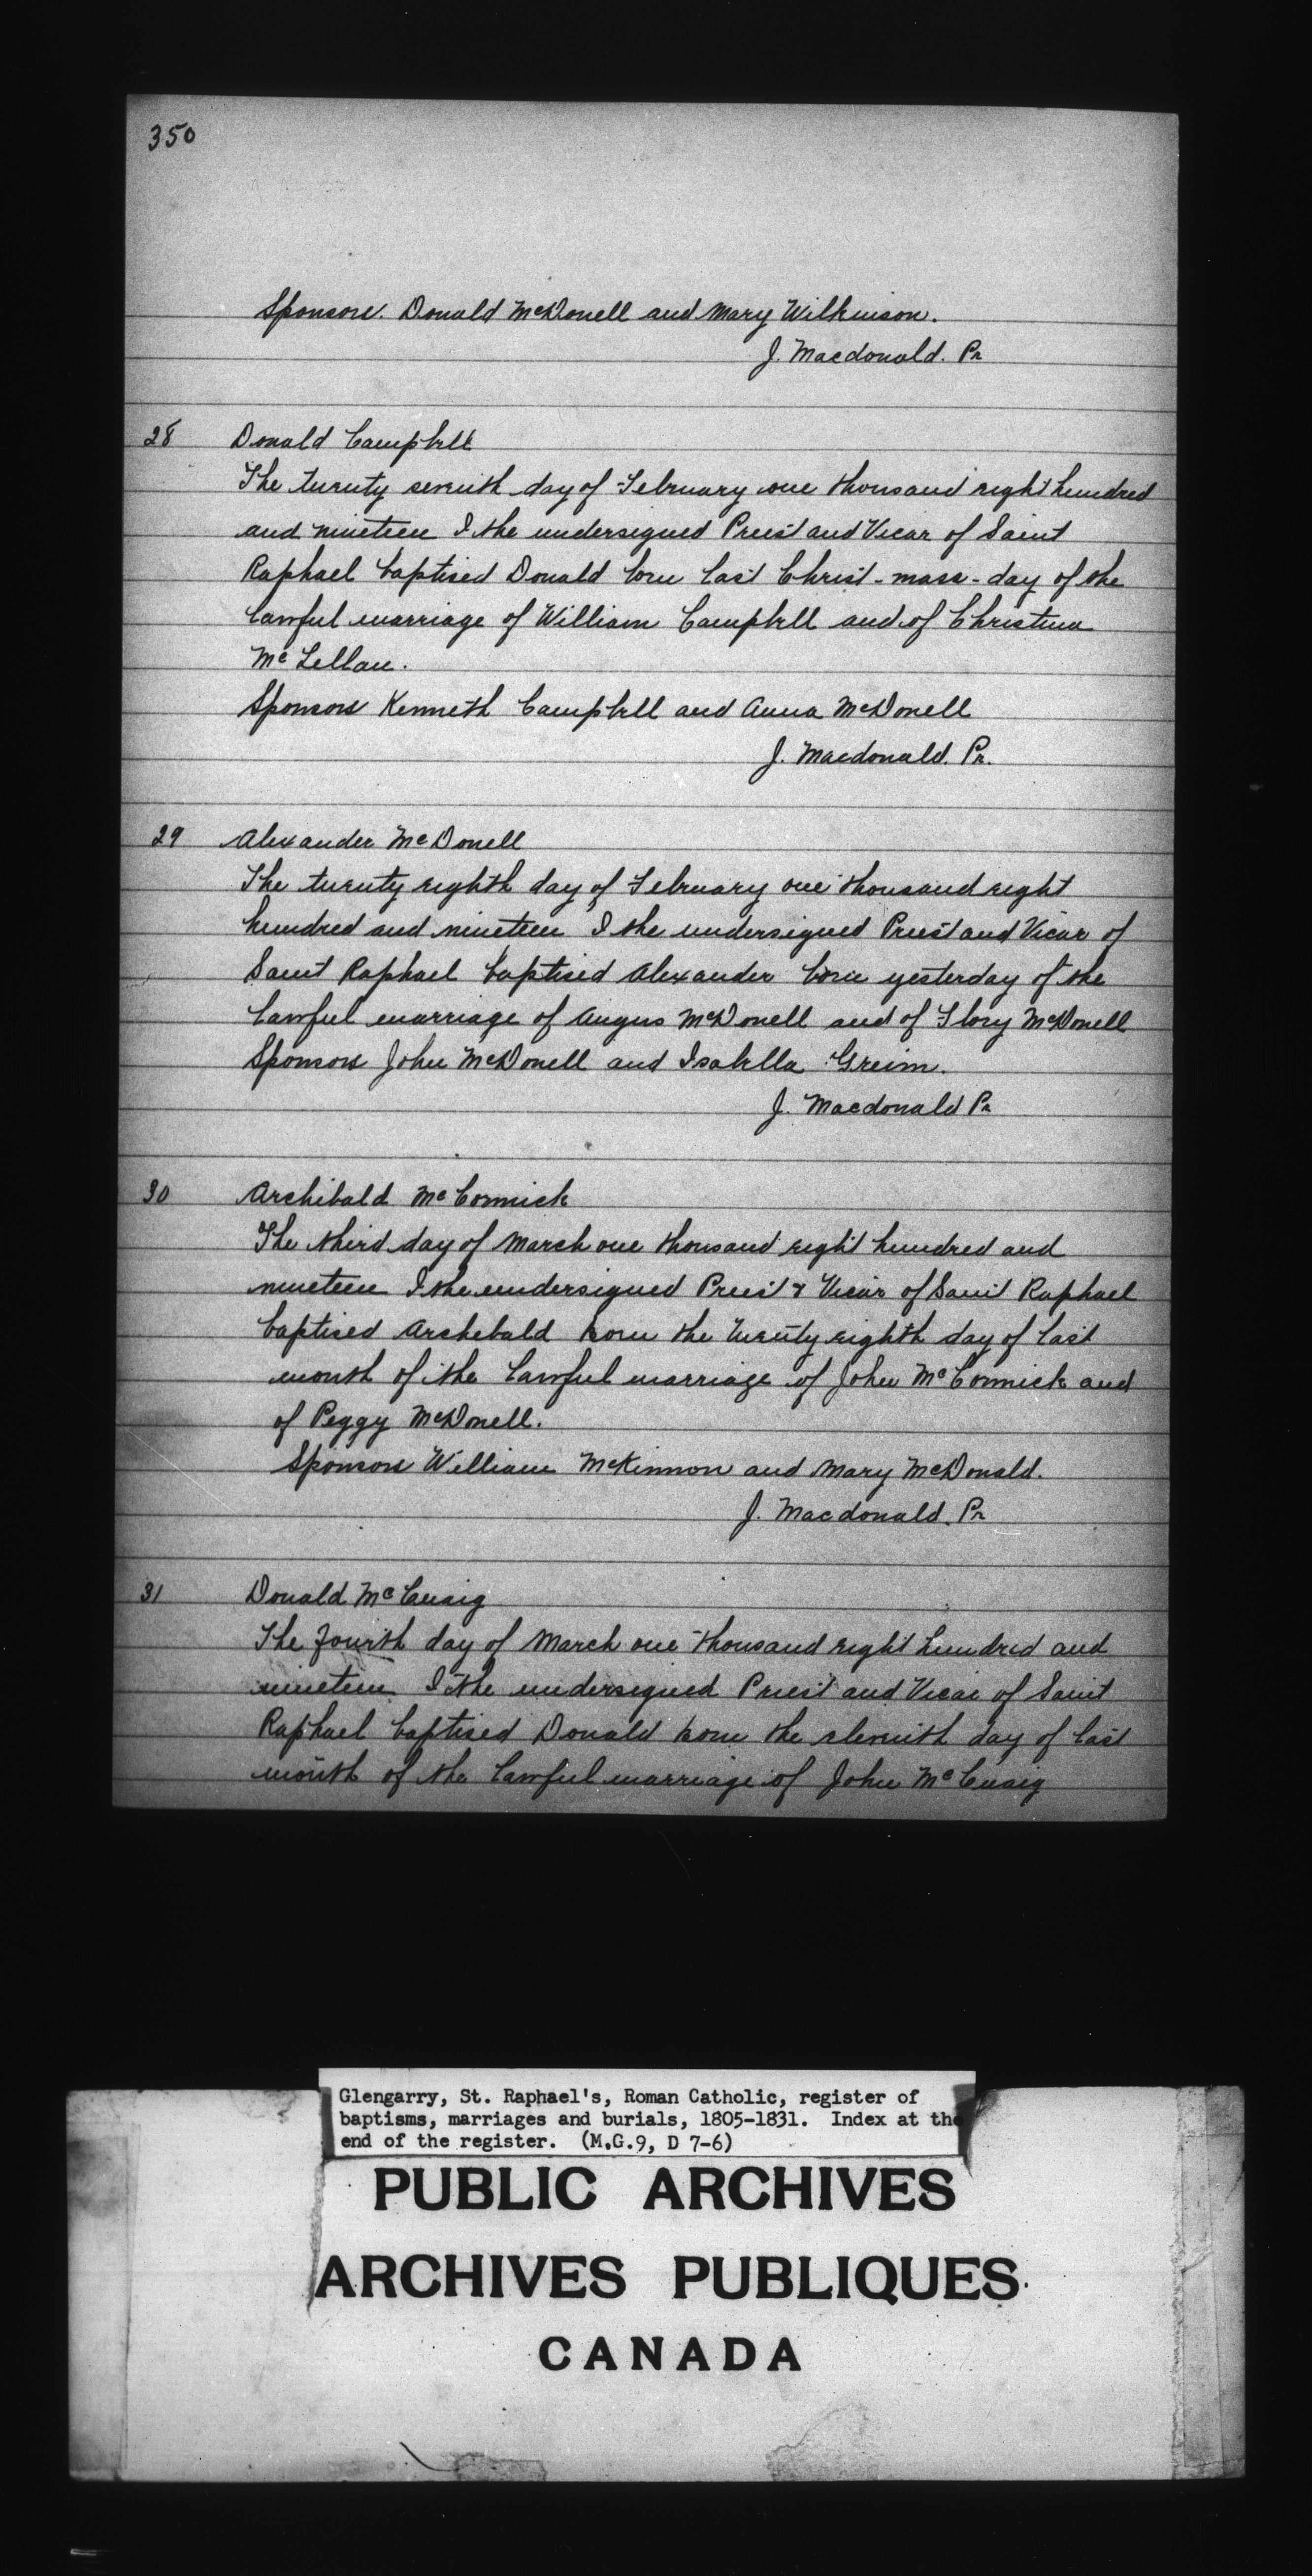 350
Sponsors. Donald McDonell and Mary Wilkinson.
J. Macdonald. Pr
28 Donald Campbell
The twenty seventh day of February one thousand eight hundred
and nineteen I the undersigned Priest and Vicar of Saint
Raphael baptised Donald born last Christ-mass-day of the
lawful marriage of William Campbell and of Christina
Mc Lellan.
Sponsors Kenneth Campbell and Anna McDonell
J. Macdonald. Pr.
29 Alexander McDonell
The twenty eighth day of February one thousand eight
hundred and nineteen I the undersigned Priest and Vicar of
Saint Raphael baptised Alexander born yesterday of the
lawful marriage of Angus McDonell and of Flory McDonell
Sponsors John McDonell and Isabella Greim.
J. Macdonald Pr
30 Archibald McCormick
The third day of March one thousand eight hundred and
nineteen I the undersigned Priest & Vicar of Saint Raphael
baptised Archebald born the twenty eighth day of last
month of the lawful marriage of John McCormick and
of Peggy McDonell.
Sponsors William McKinnon and Mary McDonald.
J. Macdonald. Pr
31 Donald McCuaig
The fourth day of March one thousand eight hundred and
nineteen I the undersigned Priest and Vicar of Saint
Raphael baptised Donald born the eleventh day of last
month of the lawful marriage of John McCuaig
Glengarry, St. Raphael's, Roman Catholic, register of
baptisms, marriages and burials, 1805-1831. Index at the
end of the register. (M.G.9, D 7-6)
PUBLIC ARCHIVES
ARCHIVES PUBLIQUES
CANADA